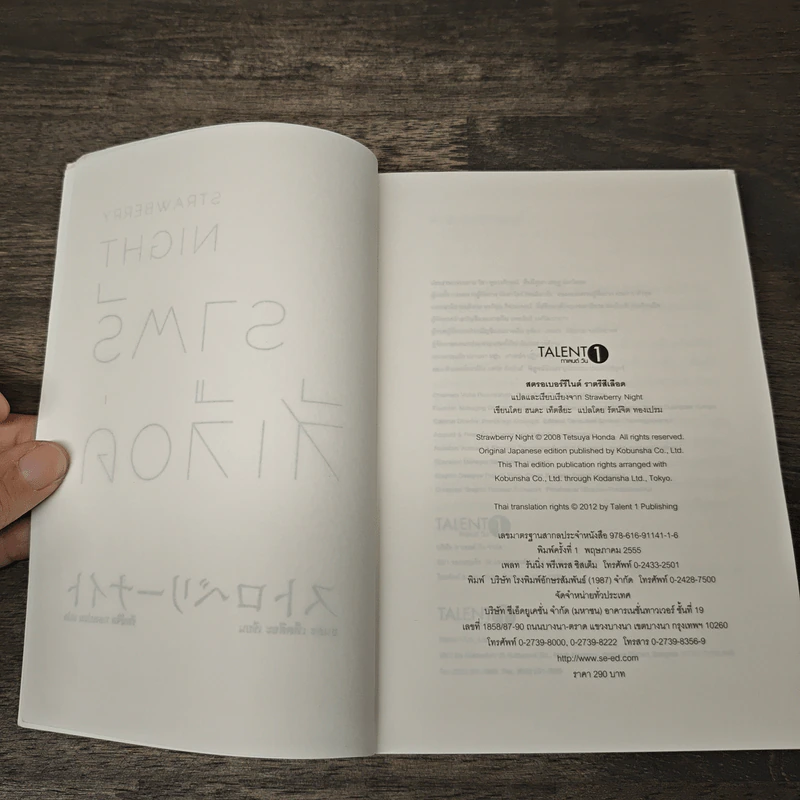 STRAWBERRY
NIGHT
ราตรี
สีเลือด
ストロベリーナイト
TALENT 1
ทาเลนต์ วัน
สตรอเบอร์รีไนต์ ราตรีสีเลือด
แปลและเรียบเรียงจาก Strawberry Night
เขียนโดย ฮนดะ เท็ตสึยะ แปลโดย รัตน์จิต ทองเปรม
Strawberry Night © 2008 Tetsuya Honda. All rights reserved.
Original Japanese edition published by Kobunsha Co., Ltd.
This Thai edition publication rights arranged with
Kobunsha Co., Ltd. through Kodansha Ltd., Tokyo.
Thai translation rights © 2012 by Talent 1 Publishing
เลขมาตรฐานสากลประจำหนังสือ 978-616-91141-1-6
พิมพ์ครั้งที่ 1 พฤษภาคม 2555
เพลท รันนิ่ง พรีเพรส ซิสเต็ม โทรศัพท์ 0-2433-2501
พิมพ์ บริษัท โรงพิมพ์อักษรสัมพันธ์ (1987) จำกัด โทรศัพท์ 0-2428-7500
จัดจำหน่ายทั่วประเทศ
บริษัท ซีเอ็ดยูเคชั่น จำกัด (มหาชน) อาคารเนชั่นทาวเวอร์ ชั้นที่ 19
เลขที่ 1858/87-90 ถนนบางนา-ตราด แขวงบางนา เขตบางนา กรุงเทพฯ 10260
โทรศัพท์ 0-2739-8000, 0-2739-8222 โทรสาร 0-2739-8356-9
http://www.se-ed.com
ราคา 290 บาท